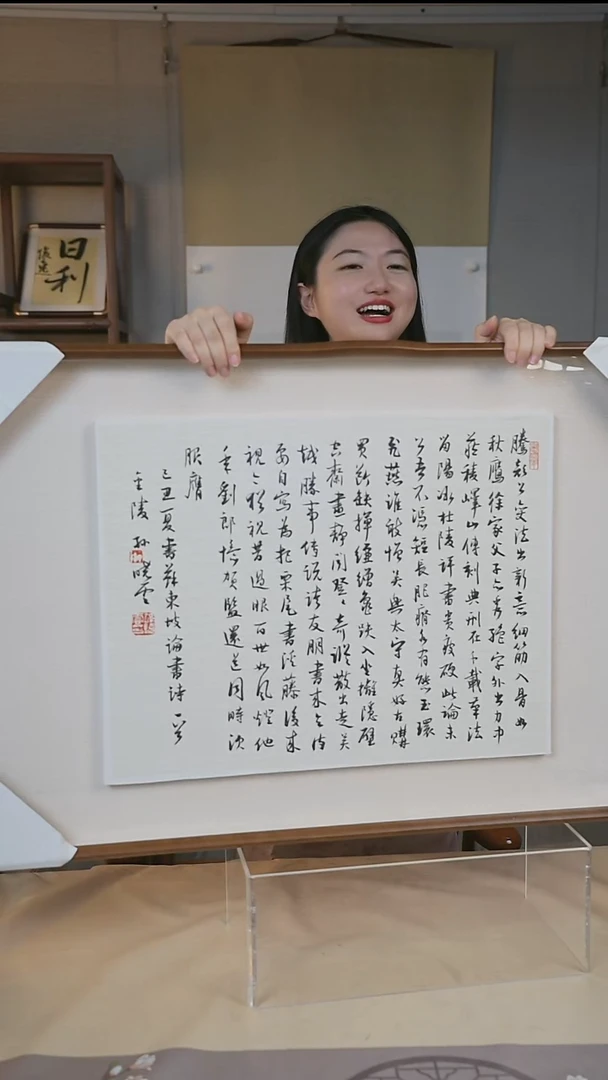 騰顔公變法出新意細筋入骨如
秋鷹徐家父子亦秀絶字外出力中
藏稜嶧山傳刻典刑在千載筆法
留陽冰杜陵評書貴瘦硬此論未
公吾不憑短長肥瘠各有態玉環
飛燕誰敢憎吴興太守真好古購
買斷缺揮縑繒龜趺入坐螭隱壁
空齋晝静聞登〻奇蹤散出走吴
越勝事傳説誇友朋書來乞詩
要自寫為把栗尾書溪藤後來
視今猶視昔過眼百世如風燈他
年劉郎憶賀監還道同時須
服膺
己丑夏書蘇東坡論書詩一首
金陵孫曉雲
日利